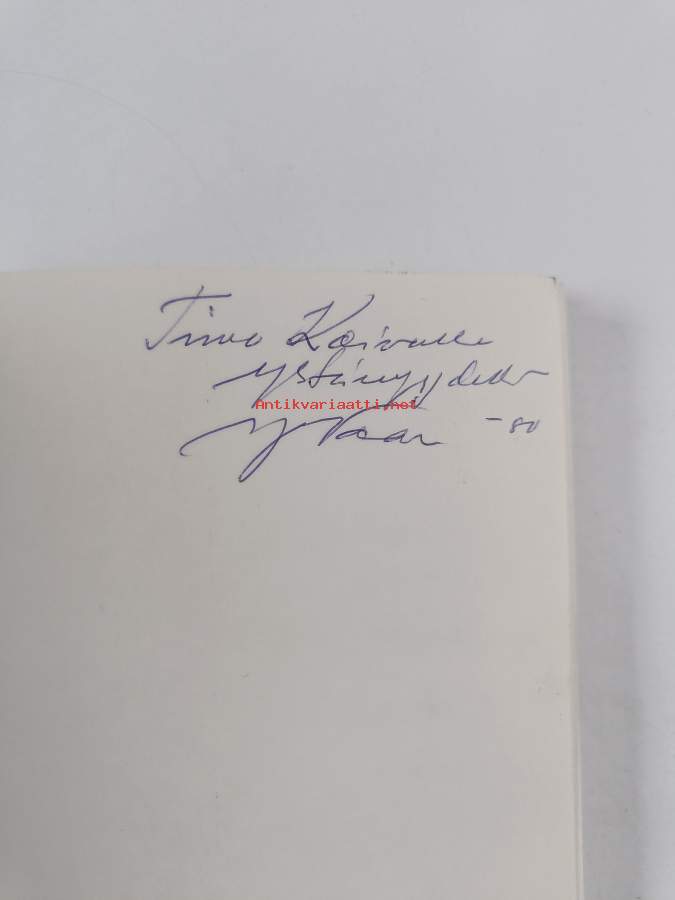 Timo Koivulle
ystävyydellä
Antikvariaatti.net
-80